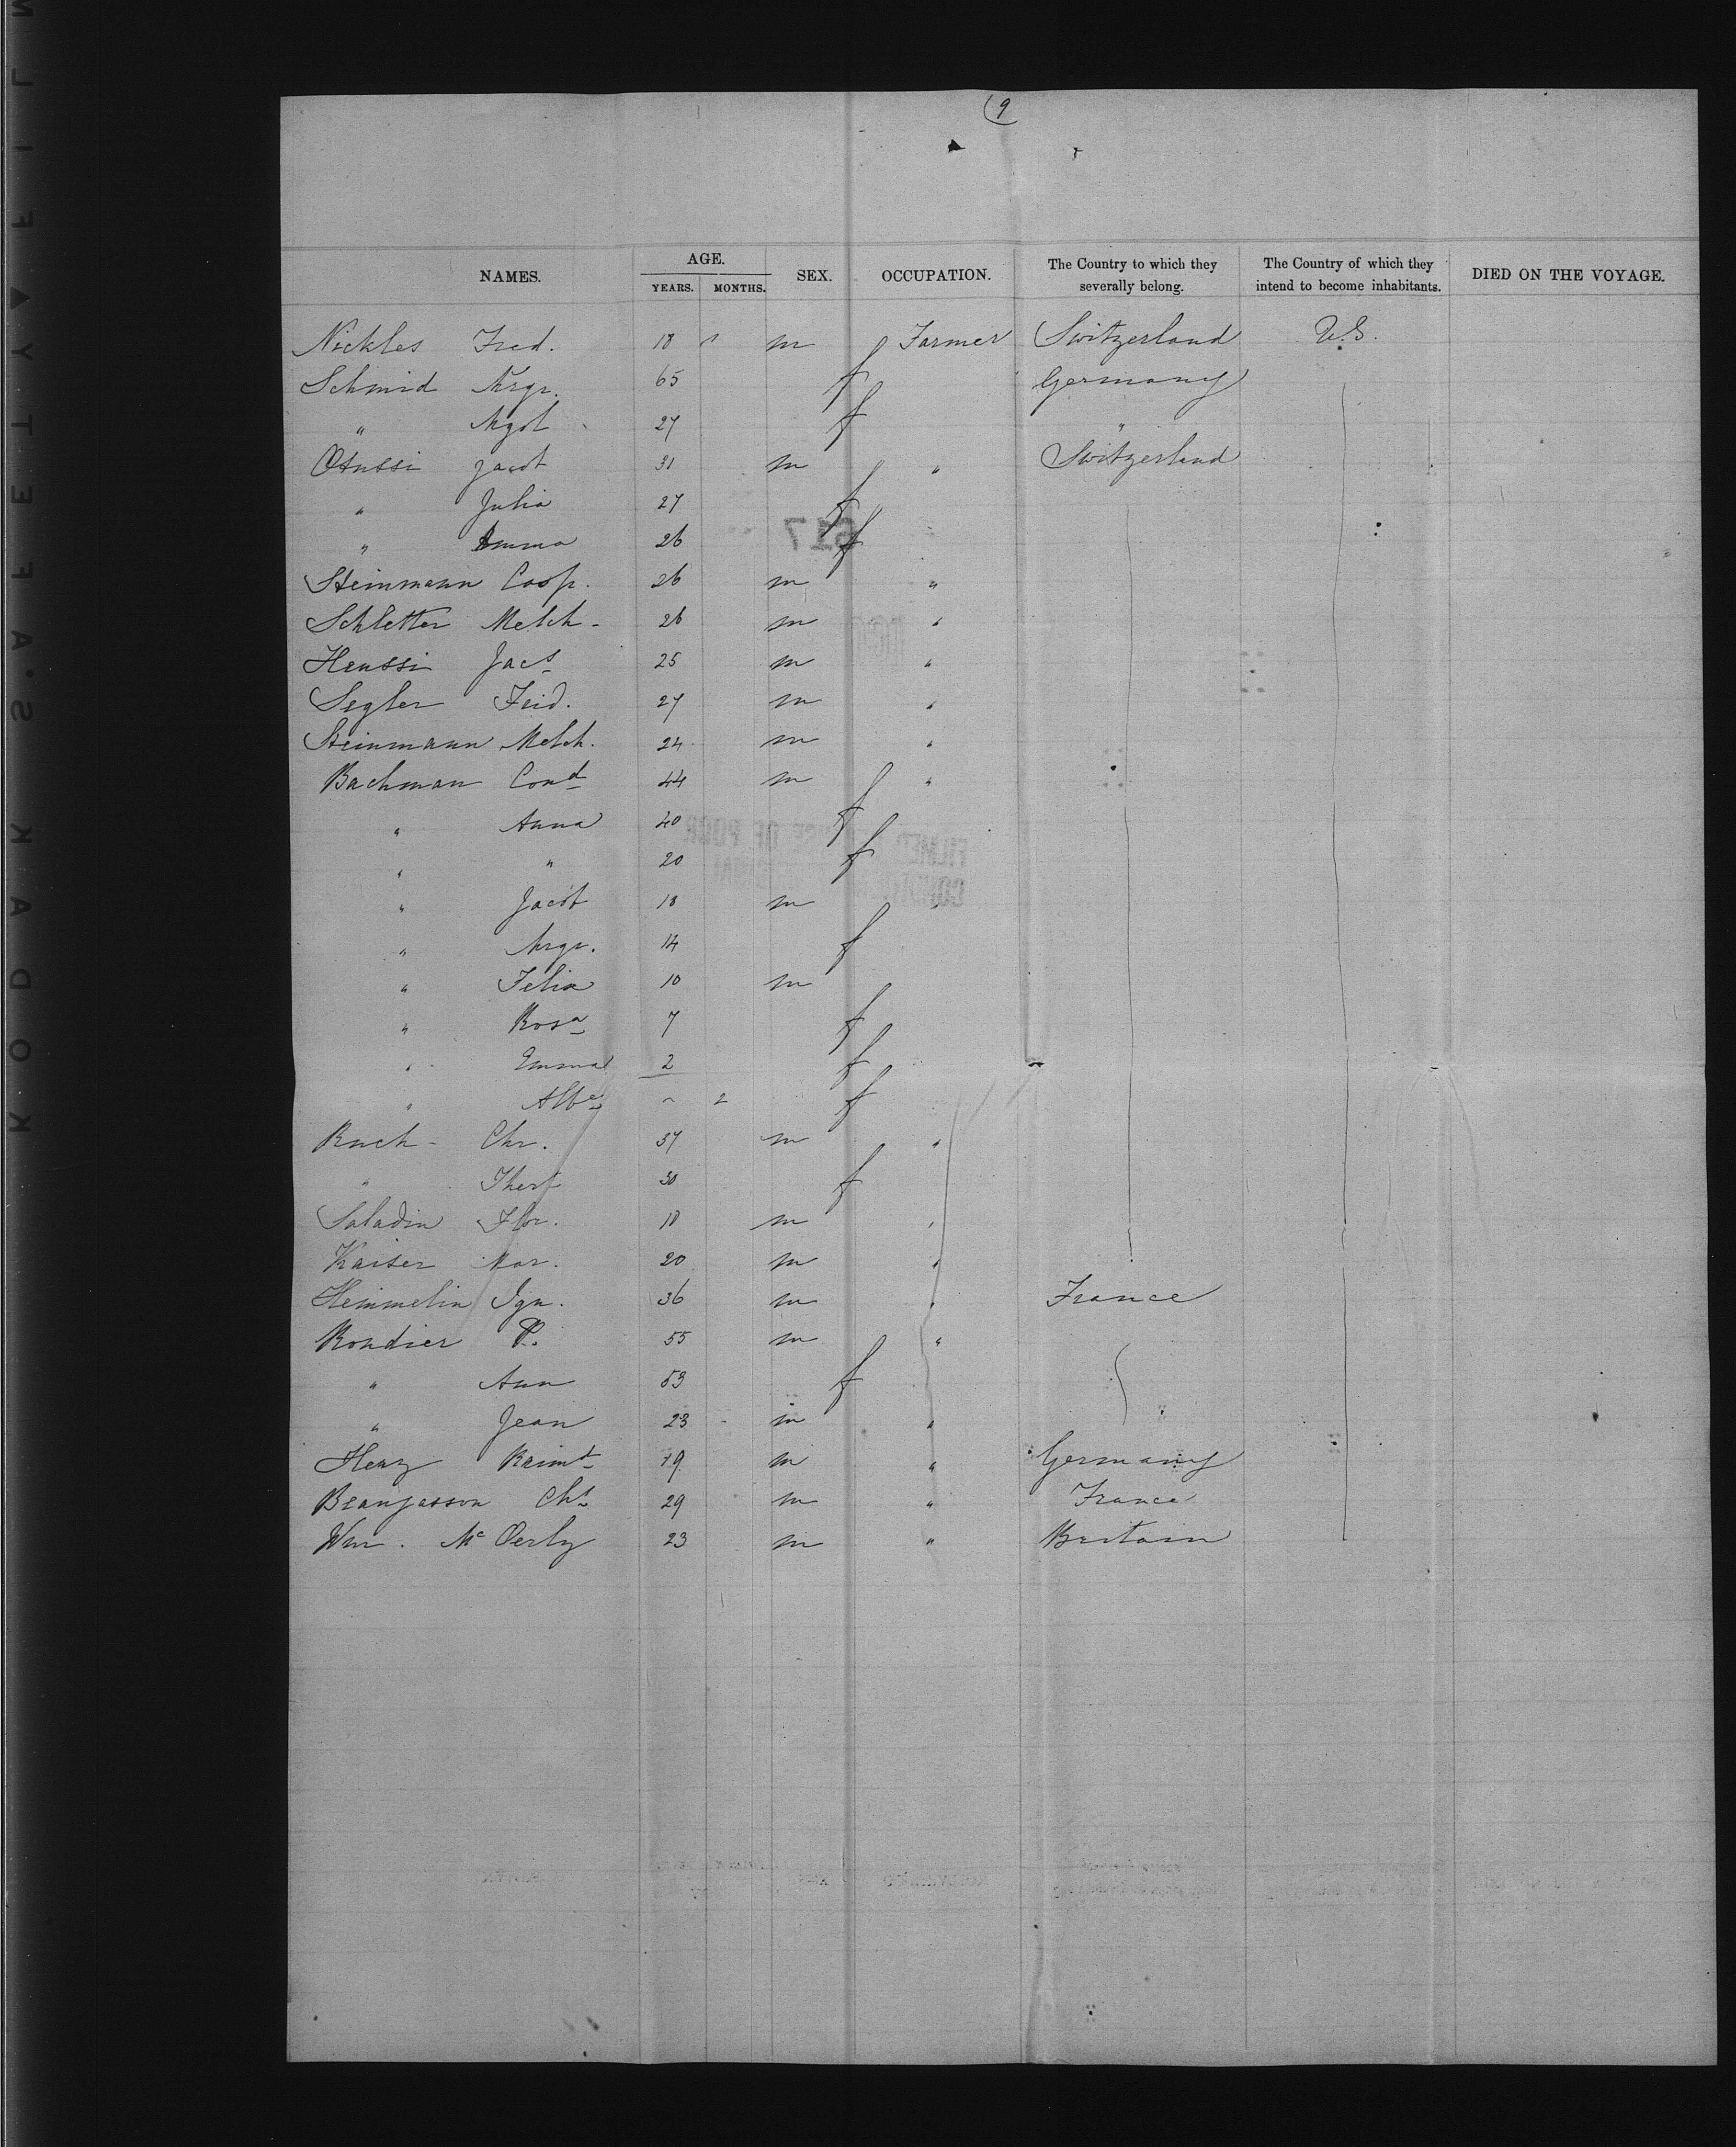 9
NAMES. AGE. YEARS. MONTHS. SEX. OCCUPATION. The Country to which they severally belong. The Country of which they intend to become inhabitants. DIED ON THE VOYAGE.
Nickles Fred. 18 m Farmer Switzerland U.S.
Schmid Mrgr. 65 f Germany
" Agst 27 f "
Jacob 31 m " Switzerland
" Julia 27 f
" Emma 26 f
617
Steinmann Casp. 26 m "
Schletter Melch - 26 m "
Heussi Jac 25 m "
Segler Frid. 27 m "
Steinmann Melch. 24 m "
Bachman Cond 44 m "
" Anna 40 f
" " 20 f
" Jacob 18 m "
" Mrgr. 14 f
" Felix 10 m
" Rosa 7 f
" Emma 2 f
" Albe - 2 f
Ruch - Chr. 37 m "
" Ther 30 f
Saladin Flor. 18 m "
Kaiser Mar. 20 m "
Hemmelin Ign. 36 m " France
Rondier P. 55 m "
" Ann 53 f
" Jean 23 m "
Henz Raimd 19 m " Germany
Beaujasson Chs 29 m " France
Wm. Mc 23 m " Britain
KODAK SAFETY FILM